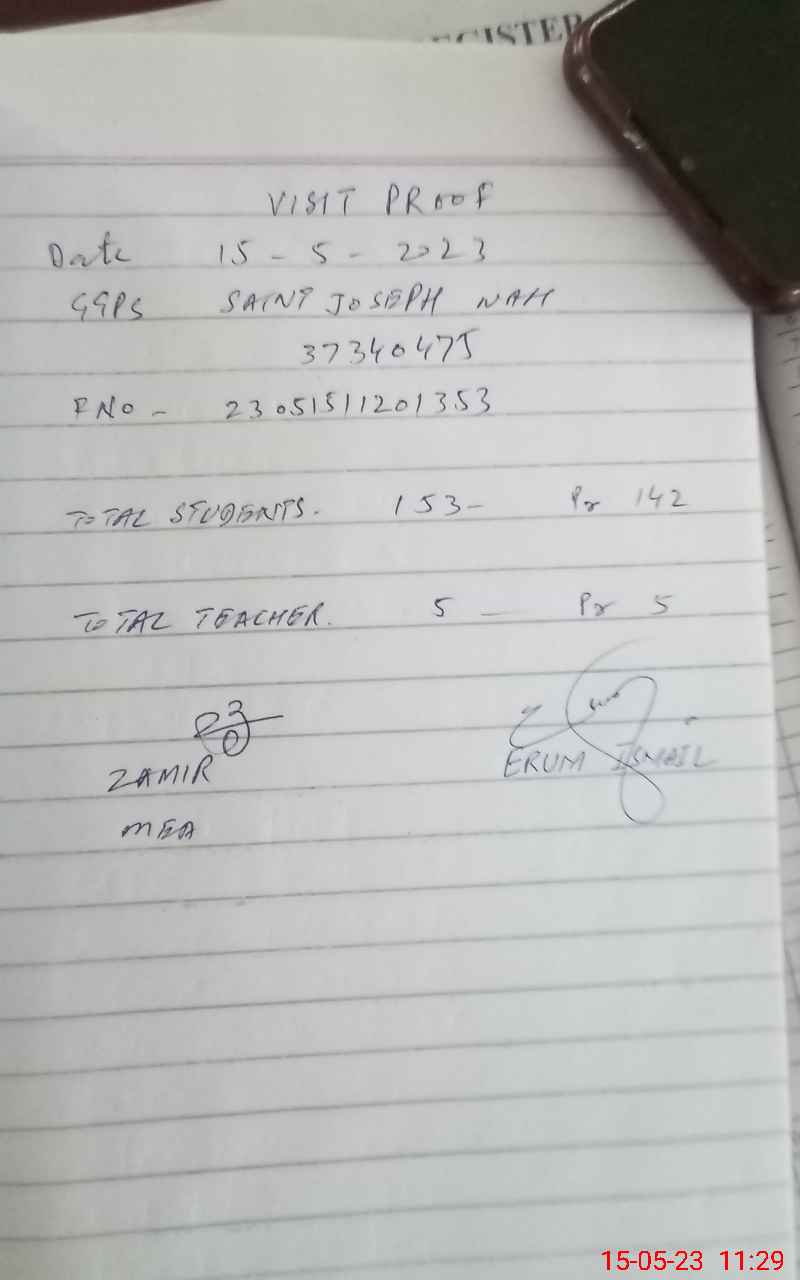 REGISTER
VISIT PROOF
Date 15 - 5 - 2023
GGPS SAINT JOSEPH NAH
37340475
F NO - 23051511201353
TOTAL STUDENTS. 153- Pr 142
TOTAL TEACHER. 5 - Pr 5
ZAMIR
ERUM ISMAIL
MEA
15-05-23 11:29